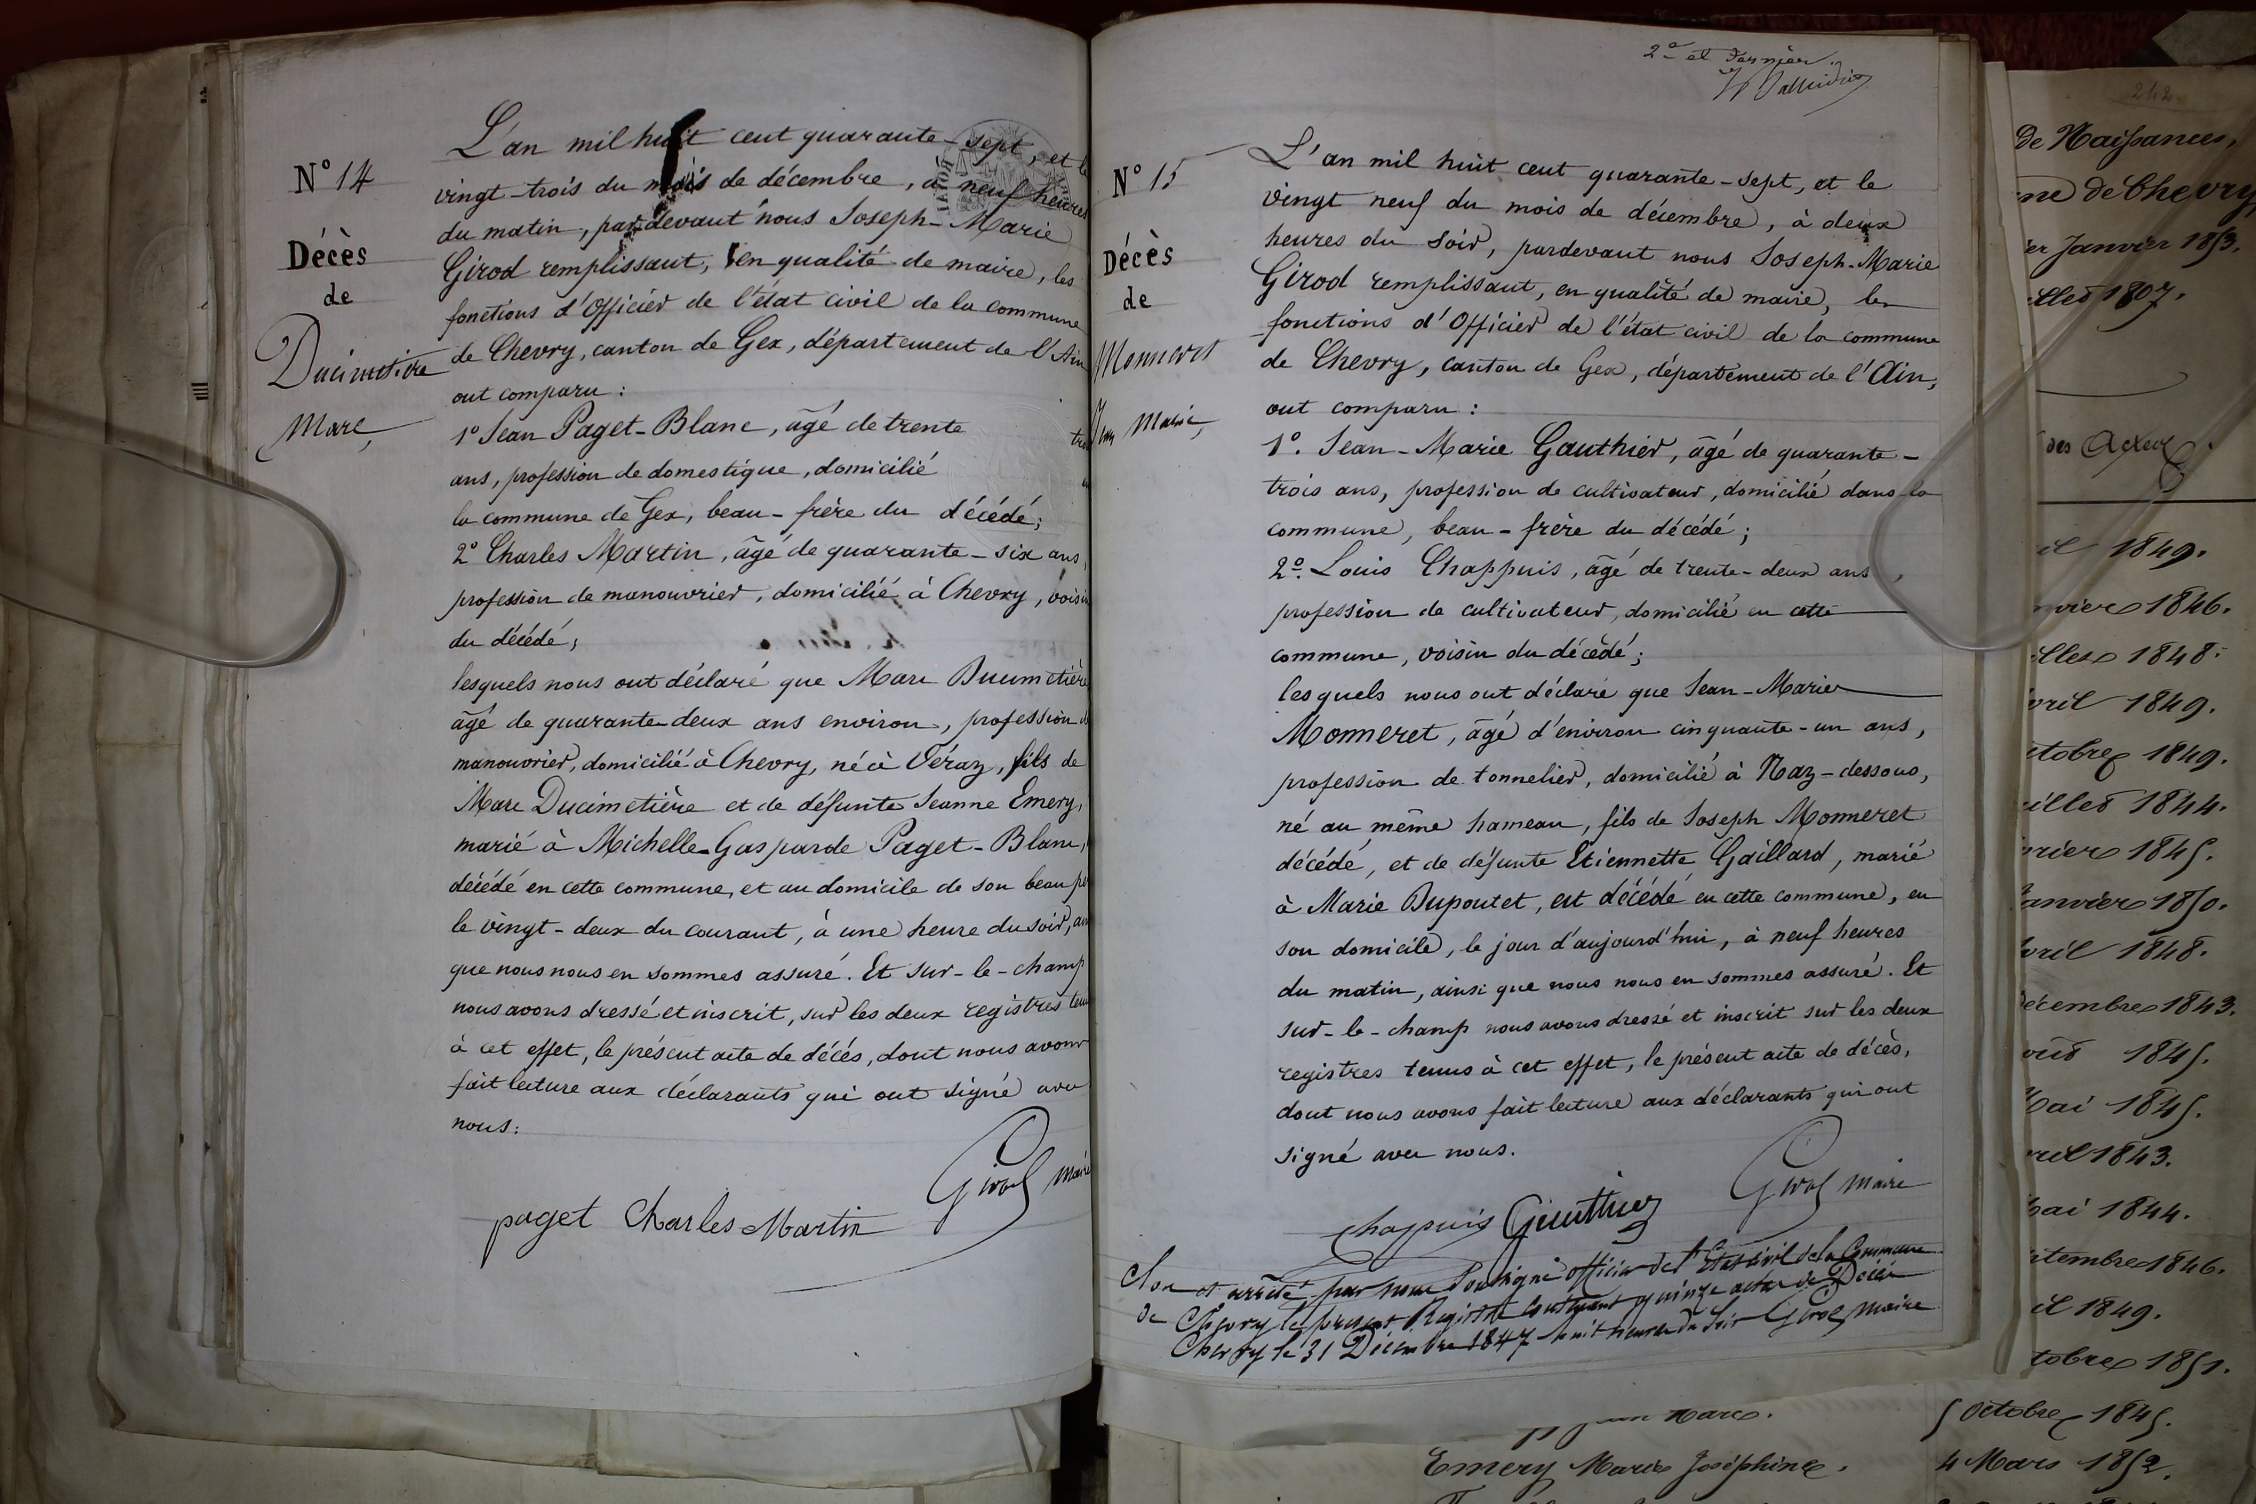 N° 14
Décès
de
Ducimetière
Marc,
L'an mil huit cent quarante-sept, et le
vingt-trois du mois de décembre, à neuf heures
du matin, pardevant nous Joseph-Marie
Girod remplissant, en qualité de maire, les
fonctions d'Officier de l'état civil de la commune
de Chevry, canton de Gex, département de l'Ain
ont comparu :
1° Jean Paget-Blanc, âgé de trente
ans, profession de domestique, domicilié
la commune de Gex, beau-frère du décédé;
2° Charles Martin, âgé de quarante-six ans,
profession de manouvrier, domicilié à Chevry, voisin
du décédé;
lesquels nous ont déclaré que Marc Ducimetière
âgé de quarante-deux ans environ, profession de
manouvrier, domicilié à Chevry, né à Véraz, fils de
Marc Ducimetière et de défunte Jeanne Emery,
marié à Michelle-Gasparde Paget-Blanc,
décédé en cette commune, et au domicile de son beau
le vingt-deux du courant, à une heure du soir,
que nous nous en sommes assuré. Et sur-le-champ
nous avons dressé et inscrit, sur les deux registres
à cet effet, le présent acte de décés, dont nous avons
fait lecture aux déclarants qui ont signé avec
nous:
Girod maire
paget Charles Martin
2e et dernier
N° 15
Décès
de
Monneret
Jean Marie,
L'an mil huit cent quarante-sept, et le
vingt neuf du mois de décembre, à deux
heures du soir, pardevant nous Joseph-Marie
Girod remplissant, en qualité de maire, les
fonctions d'Officier de l'état civil de la commune
de Chevry, canton de Gex, département de l'Ain,
ont comparu :
1°. Jean-Marie Gauthier, âgé de quarante-
trois ans, profession de cultivateur, domicilié dans la
commune, beau-frère du décédé;
2°. Louis Chappuis, âgé de trente-deux ans,
profession de cultivateur, domicilié en cette
commune, voisin du décédé;
lesquels nous ont déclaré que Jean-Marie
Monneret, âgé d'environ cinquante-un ans,
profession de tonnelier, domicilié à Naz-dessous,
né au même hameau, fils de Joseph Monneret
décédé, et de défunte Etiennette Gaillard, marié
à Marie Dupoutet, est décédé en cette commune, en
son domicile, le jour d'aujourd'hui, à neuf heures
du matin, ainsi que nous nous en sommes assuré. Et
sur-le-champ nous avons dressé et inscrit sur les deux
registres tenus à cet effet, le présent acte de décès,
dont nous avons fait lecture aux déclarants qui ont
signé avec nous.
Girod maire
Chappuis Gauthier
Clos et arrêté par nous soussigné officier de l'Etat civil de la Commune
de Chevry le présent Registre contenant quinze actes de Décès
Chevry le 31 Décembre 1847 huit heures du soir Girod maire
242
de Naissances,
de Chevry
er Janvier 1853.
1807.
des Actes
1849.
1846.
1848.
1849.
1849.
1844.
1845.
anvier 1850.
1848.
écembre 1843.
1845.
Mai 1845.
1843.
1844.
1846.
1849.
tobre 1851.
5 Octobre 1845.
Emery Marie Joséphine.
4 Mars 1852.